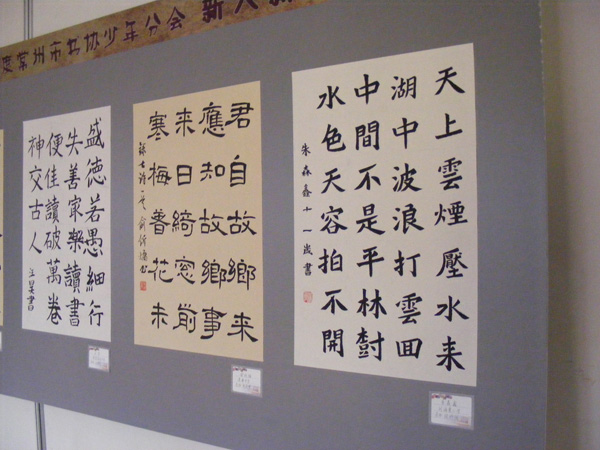 度常州市书协少年分会 新人
天上雲煙壓水来
湖中波浪打雲囬
中間不是平林樹
水色天容拍不開
朱森鑫十一歲書
君自故鄉来
應知故鄉事
来日綺窓前
寒梅着花未
盛德若愚細行
失善家樂讀書
便佳讀破萬卷
神交古人